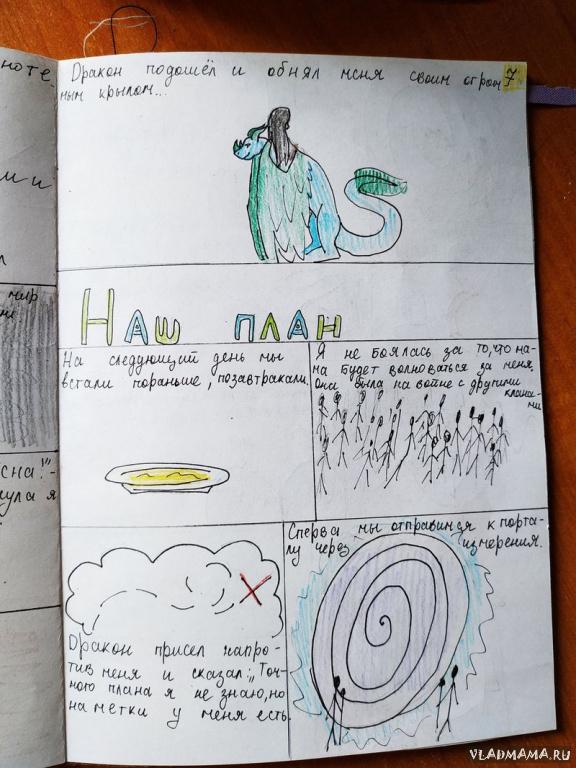 ноте
ми
л
мир
сна!"-
нула я
Дракон подошёл и обнял меня своим огром
7
ным крылом...
Наш план
На следующий день мы
встали пораньше, позавтракали.
Я не боялась за то, что ма-
ма будет волноваться за меня,
она была на войне с другими
клана-
ми
Дракон присел напро-
тив меня и сказал: „Точ-
ного плана я не знаю, но
наметки у меня есть.
Сперва мы отправимся к порта-
лу через измерения.
VLADMAMA.RU